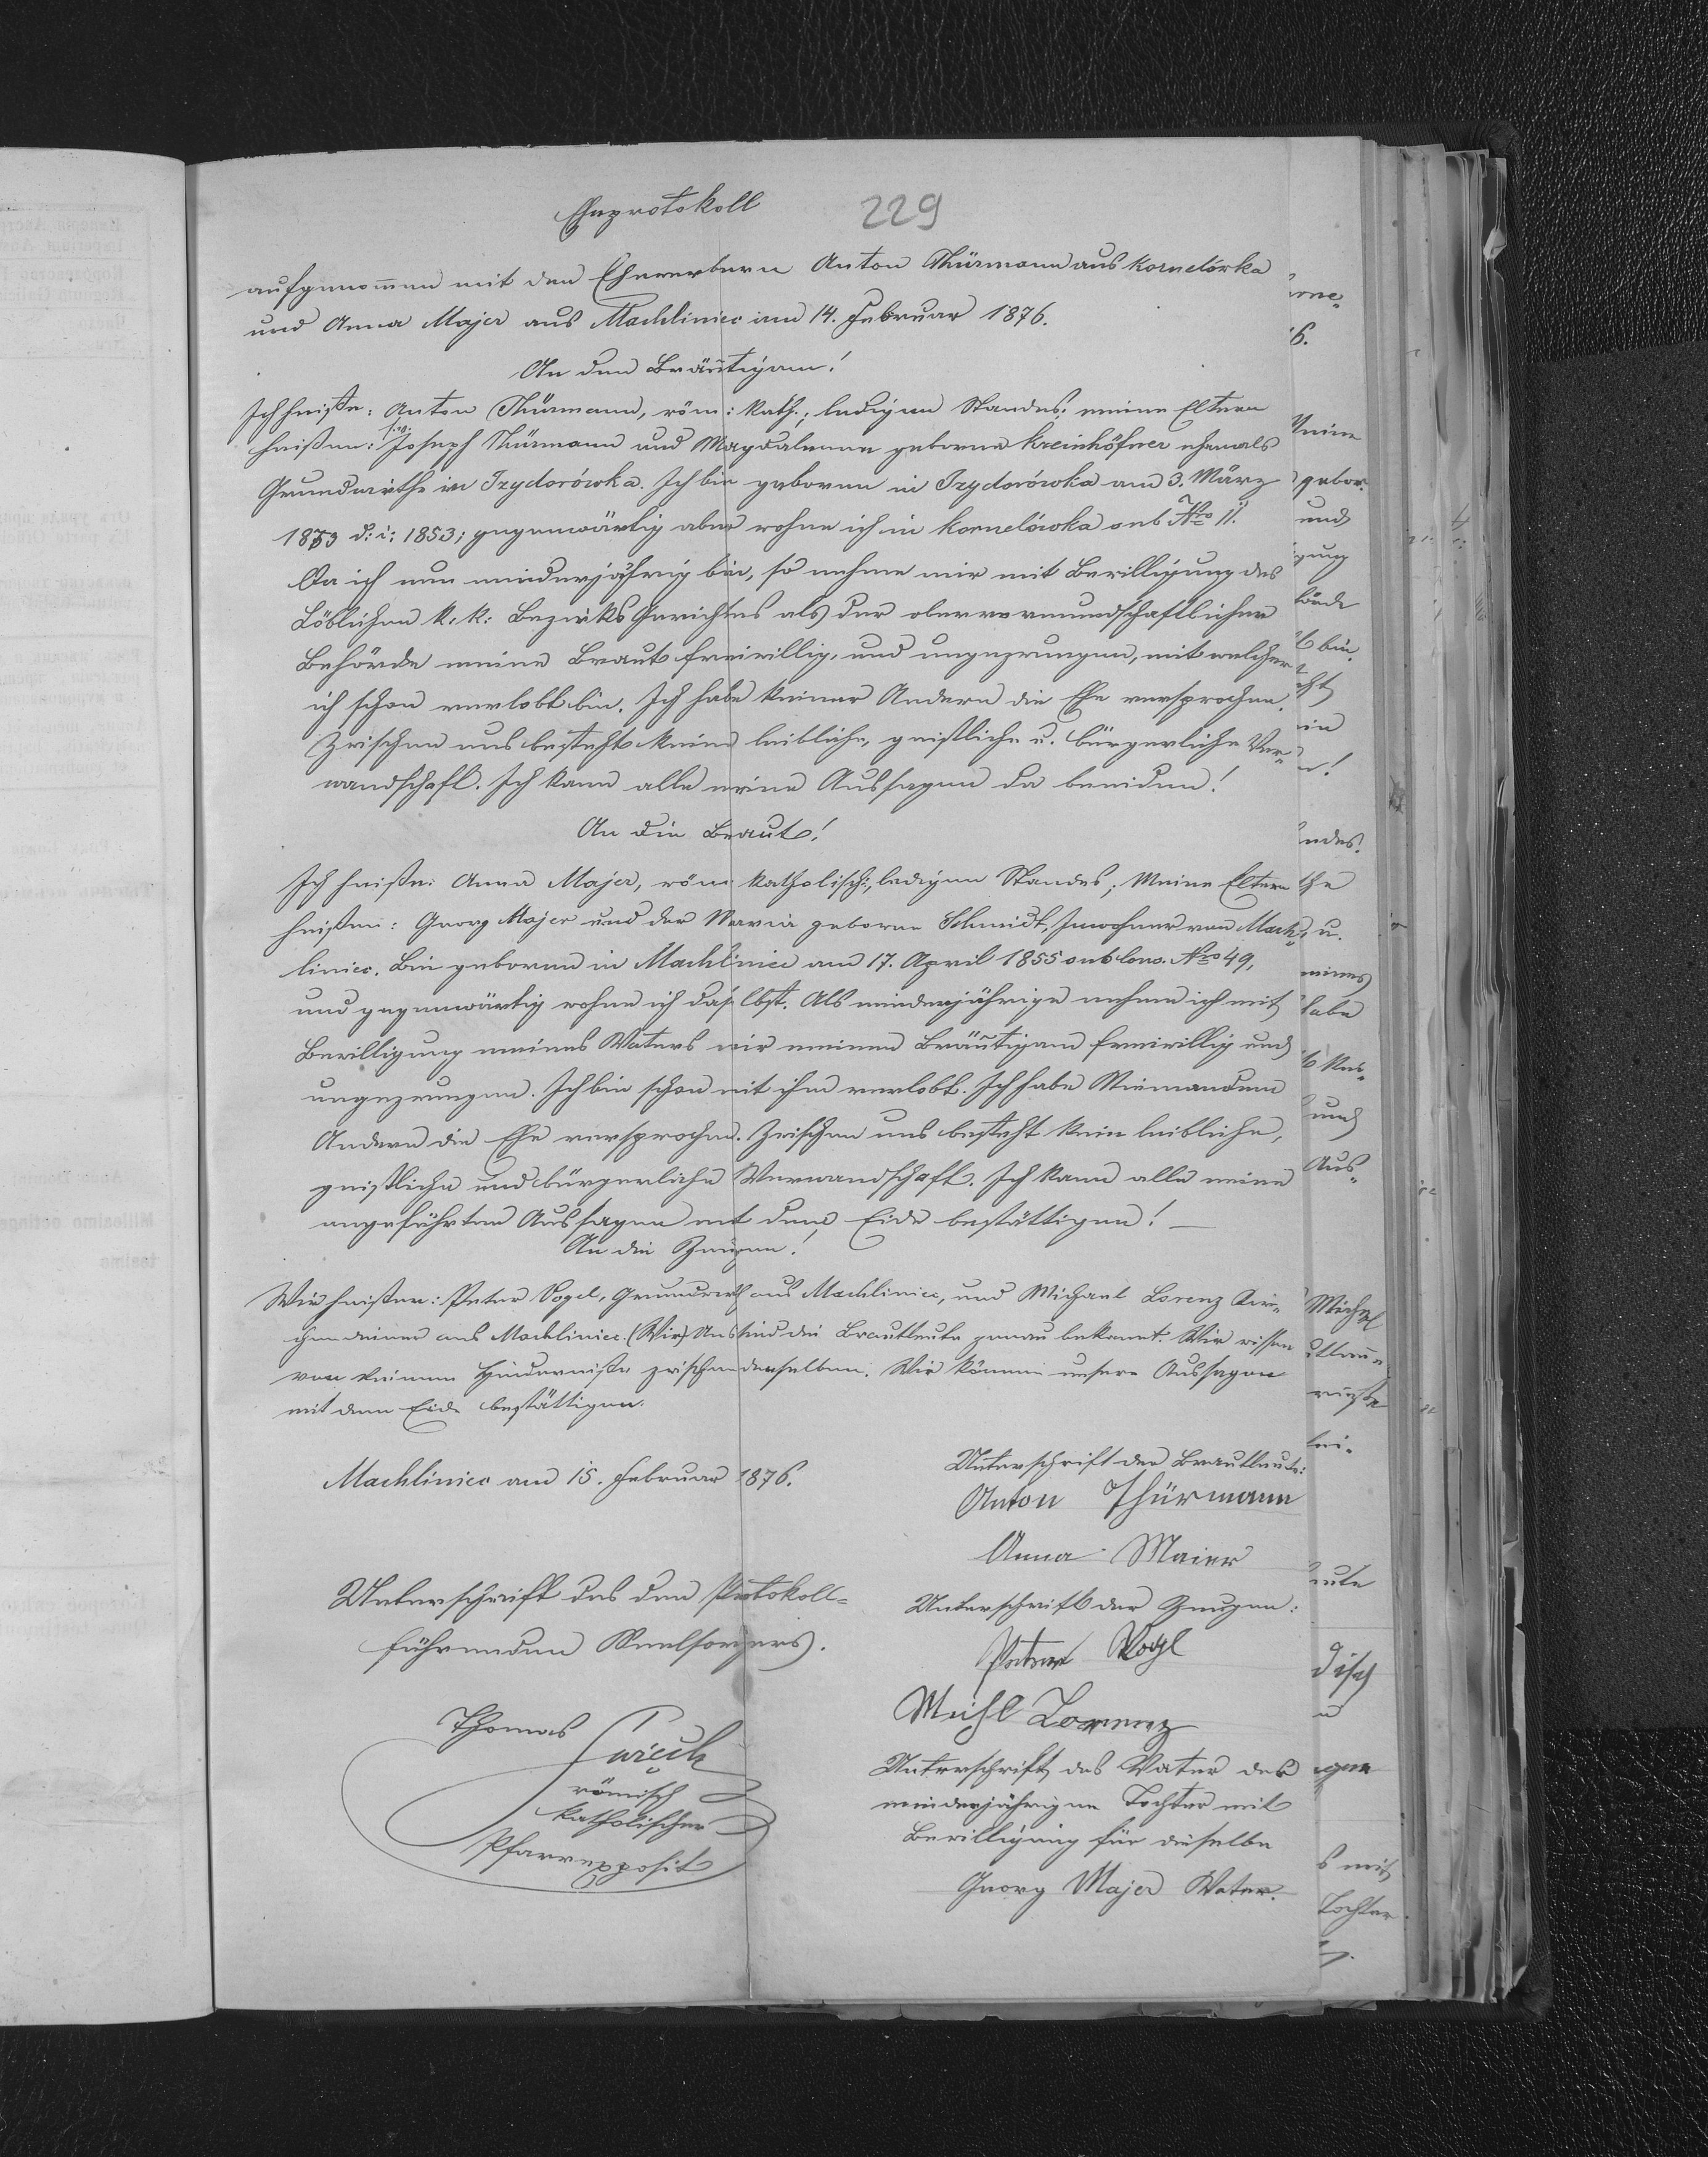 Eheprotokoll 229
aufgenommen mit den Ehewerbern Anton Thürmann aus Kornelówka
und Anna Majer aus Machliniec am 14. Februar 1876.
An den Bräutigam!
Ich heiße: Anton Thürmann, röm: kath:, ledigen Standes; meine Eltern
heißen: Joseph Thürmann und Magdalenna geborne Kreinhöfner ehemals
Grundwirthe in Izydorówka. Ich bin geboren in Izydorówka am 3. März
1853 d: i: 1853; gegenwärtig aber wohne ich in Kornelówka sub Nro 11.
Da ich nun minderjährig bin, so nehme mir mit Bewilligung des
Löblichen k. k. Bezirks Gerichtes als der obervormundschaftlicher
Behörde meine Braut freiwillig, und ungezwungen, mit welcher
ich schon verlobt bin. Ich habe keiner Andern die Ehe versprochen.
Zwischen uns besteht keine leibliche, geistliche u. bürgerliche Ver-
wandschaft. Ich kann alle meine Aussagen da beeiden!
An die Braut!
Ich heiße: Anna Majer, röm: katholisch:, ledigen Standes; Meine Eltern
heißen: Georg Majer und der Maria geborne Schmidt, Inwohner von Mach-
liniec. Bin geboren in Machliniec am 17. April 1855 sub Cons. Nro 49,
und gegenwärtig wohne ich daselbst. Als minderjährige nehme ich mit
Bewilligung meines Vaters mir meinen Bräutigam freiwillig und
ungezwungen. Ich bin schon mit ihm verlobt. Ich habe Niemandem
Andern die Ehe versprochen. Zwischen uns besteht kein leibliche,
geistliche und bürgerliche Verwandschaft. Ich kann alle meine
angeführten Aussagen mit dem Eide bestättigen! —
An die Zeugen!
Wir heißen: Peter Vogel, Grundwirth aus Machliniec, und Michael Lorenz Kir-
chendiener aus Machliniec. (Wir) Uns sind die Brautleute genau bekannt. Wir wissen
von keinem Hinderniße zwischen denselben. Wir können unsere Aussagen
mit dem Eide bestättigen.
Machliniec am 15. Februar 1876.
Unterschrift der Brautleute:
Anton Thürmann
Anna Maier
Unterschrift des den Protokoll-
führenden Seelsorgers.
Unterschrift der Zeugen:
Peter Vogl
Michl Lorenz
Thomas
römisch
katholischer
Pfarrexposit
Unterschrift des Vater der
minderjährigen Tochter mit
Bewilligung für dieselbe
Georg Majer Vater.